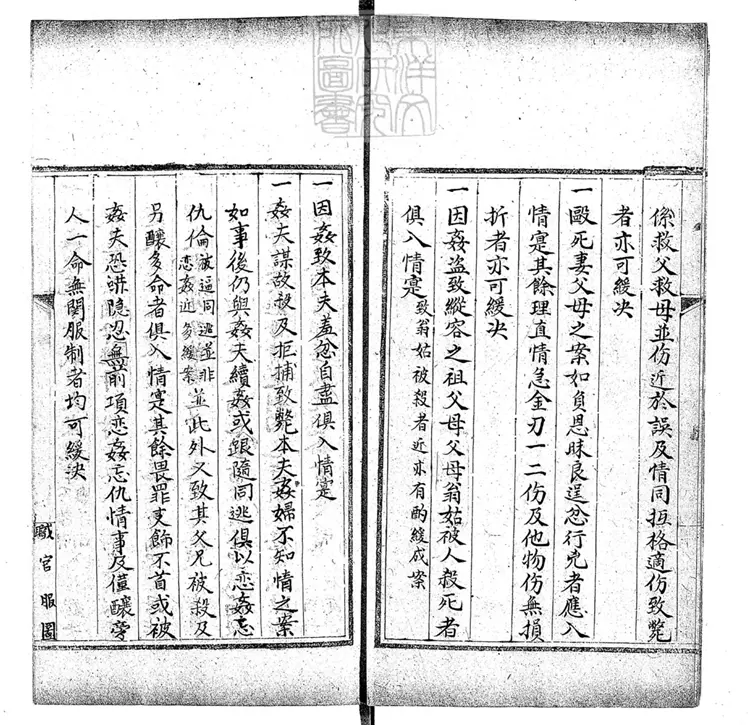 係救父救母並伤近於誤及情同抵格適伤致斃
者亦可緩决
一毆死妻父母之案如負恩昧良逞忿行兇者應入
情寔其餘理直情急金刃一二伤及他物伤無損
折者亦可緩决
一因姦盗致縱容之祖父母父母翁姑被人殺死者
俱入情寔致翁姑被殺者近亦有酌緩成案
一因姦致本夫羞忿自盡俱入情寔
一姦夫謀故殺及拒捕致斃本夫姦婦不知情之案
如事後仍與姦夫續姦或跟隨同逃俱以恋姦忘
仇倫被逼同逃並非恋姦近多緩案並此外又致其父兄被殺及
另釀多命者俱入情寔其餘畏罪支飾不首或被
姦夫恐嚇隐忍無前項恋姦忘仇情事及僅釀旁
人一命無関服制者均可緩决
職官服圖
東洋文化研究所圖書